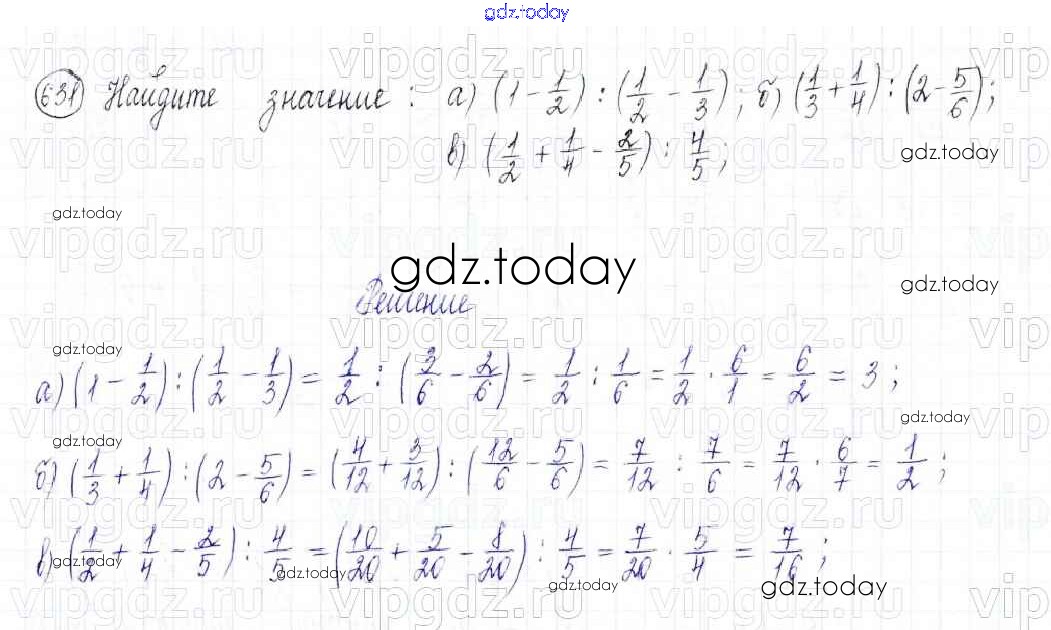 gdz.today
631 Найдите значение: а) (1 - 1/2) : (1/2 - 1/3); б) (1/3 + 1/4) : (2 - 5/6);
в) (1/2 + 1/4 - 2/5) : 4/5;
gdz.today
gdz.today
gdz.today
gdz.today
Решение
gdz.today
а) (1 - 1/2) : (1/2 - 1/3) = 1/2 : (3/6 - 2/6) = 1/2 : 1/6 = 1/2 · 6/1 = 6/2 = 3;
gdz.today
gdz.today
б) (1/3 + 1/4) : (2 - 5/6) = (4/12 + 3/12) : (12/6 - 5/6) = 7/12 : 7/6 = 7/12 · 6/7 = 1/2;
в) (1/2 + 1/4 - 2/5) : 4/5 = (10/20 + 5/20 - 8/20) : 4/5 = 7/20 · 5/4 = 7/16;
gdz.today
gdz.today
gdz.today
gdz.today
vipgdz.ru